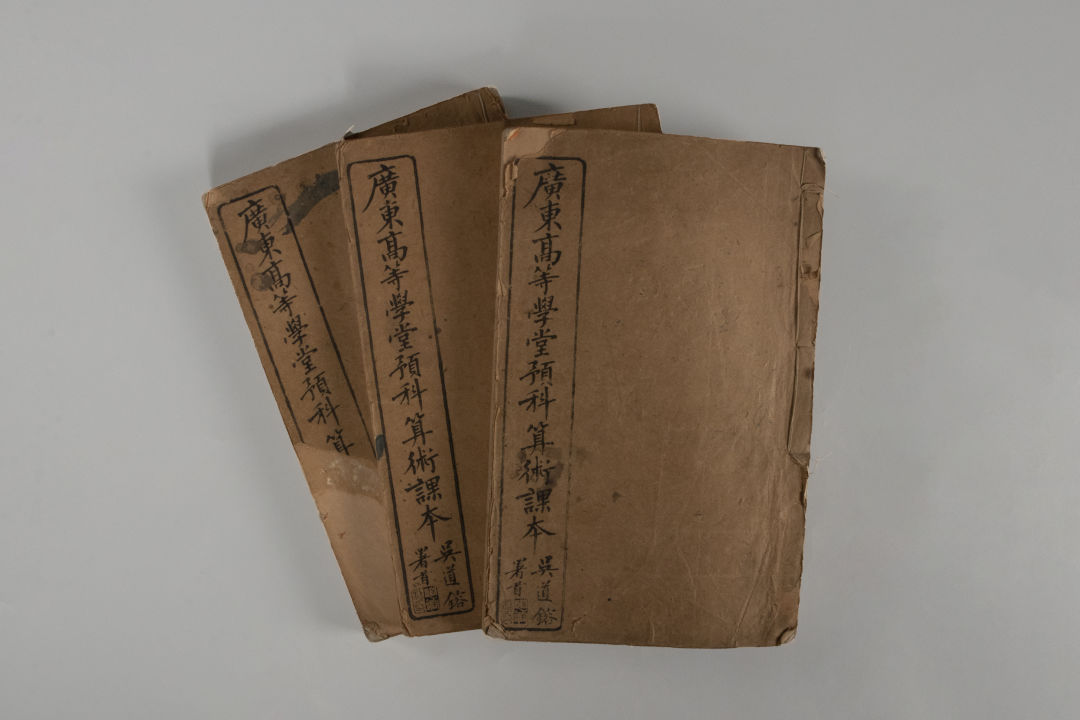 廣東高等學堂預科算術課本
吳道鎔
署首
廣東高等學堂預科算術課本
吳道鎔
署首
廣東高等學堂預科算